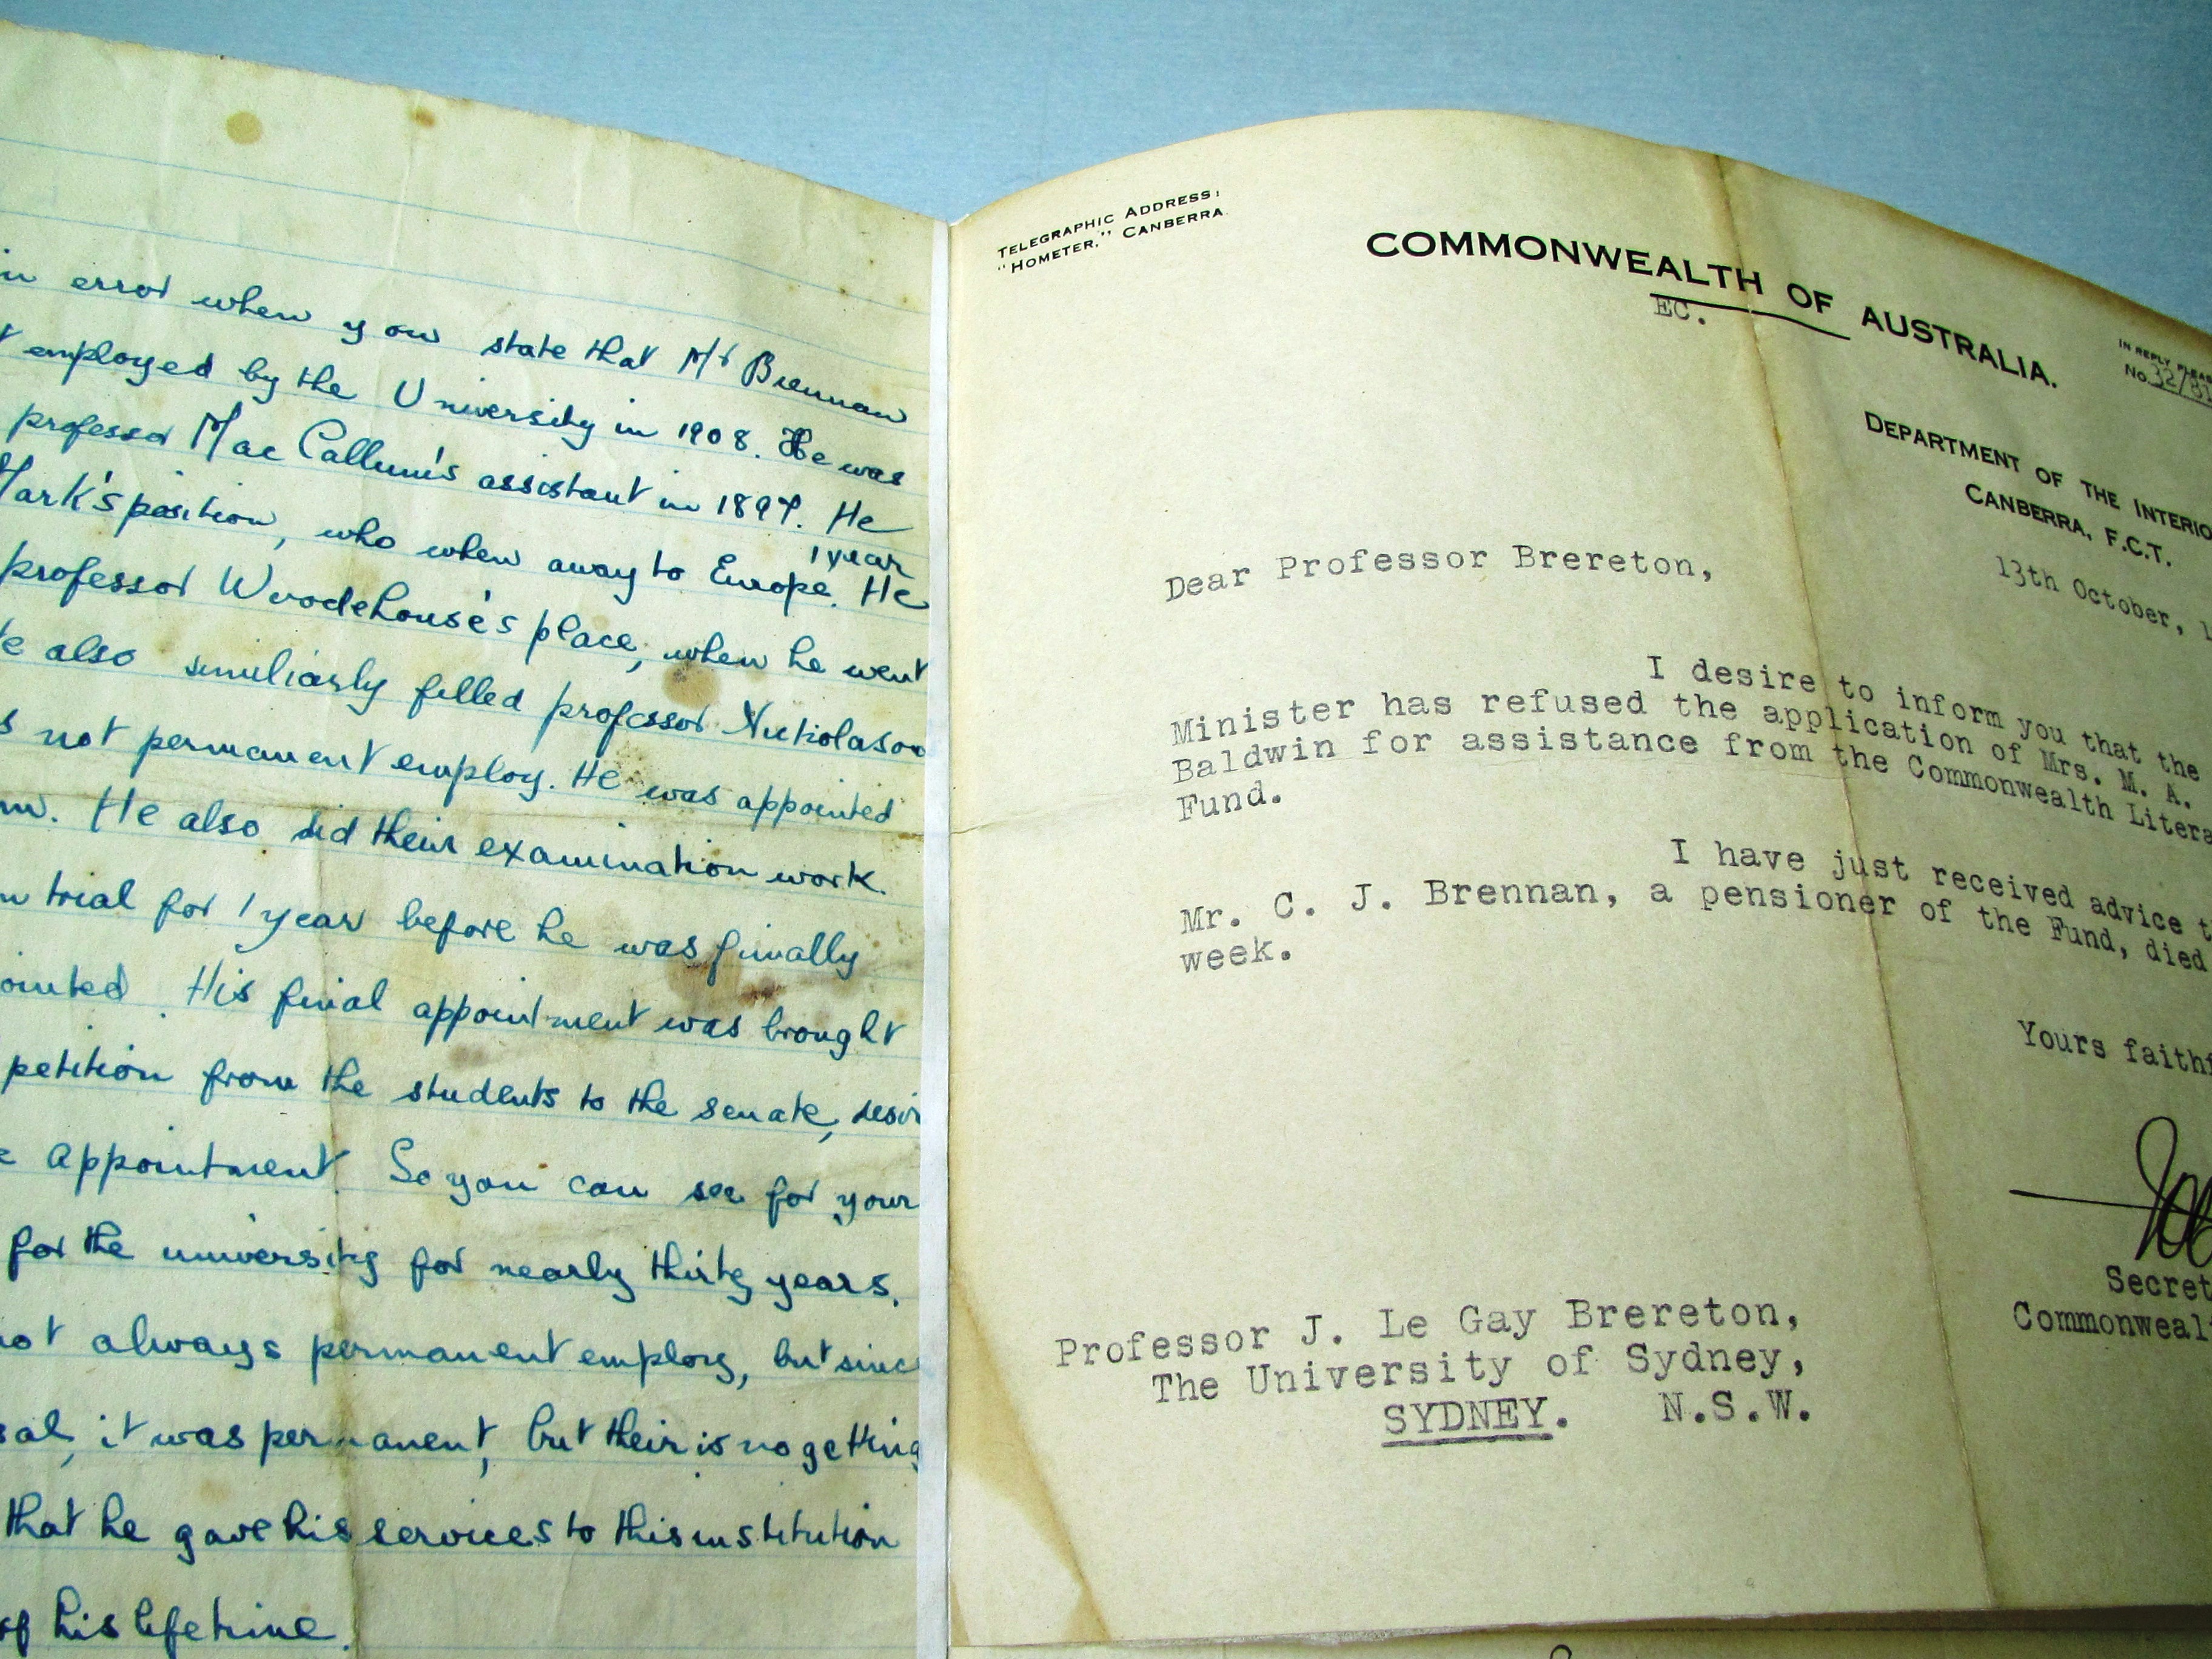 in error when you state that Mr Brennan
employed by the University in 1908. He was
professor Mac Callum's assistant in 1897. He
position, who when away to Europe. He
1 year
professor Woodehouse's place, when he went
also similiarly filled professor Nickolason
s not permanent employ. He was appointed
He also did their examination work.
trial for 1 year before he was finally
ointed. His final appointment was brought
petition from the students to the senate, desir
appointment. So you can see for your
for the university for nearly thirty years.
not always permanent employ, but since
it was permanent, but their is no getting
that he gave his services to this institution
of his lifetime.
TELEGRAPHIC ADDRESS:
"HOMETER," CANBERRA.
COMMONWEALTH OF AUSTRALIA.
EC.
IN REPLY PLEAS
No. 32/81
DEPARTMENT OF THE INTERIO
CANBERRA, F.C.T.
13th October, 1
Dear Professor Brereton,
I desire to inform you that the
Minister has refused the application of Mrs. M. A.
Baldwin for assistance from the Commonwealth Litera
Fund.
I have just received advice t
Mr. C. J. Brennan, a pensioner of the Fund, died
week.
Yours faithf
Secret
Commonweal
Professor J. Le Gay Brereton,
The University of Sydney,
SYDNEY. N.S.W.